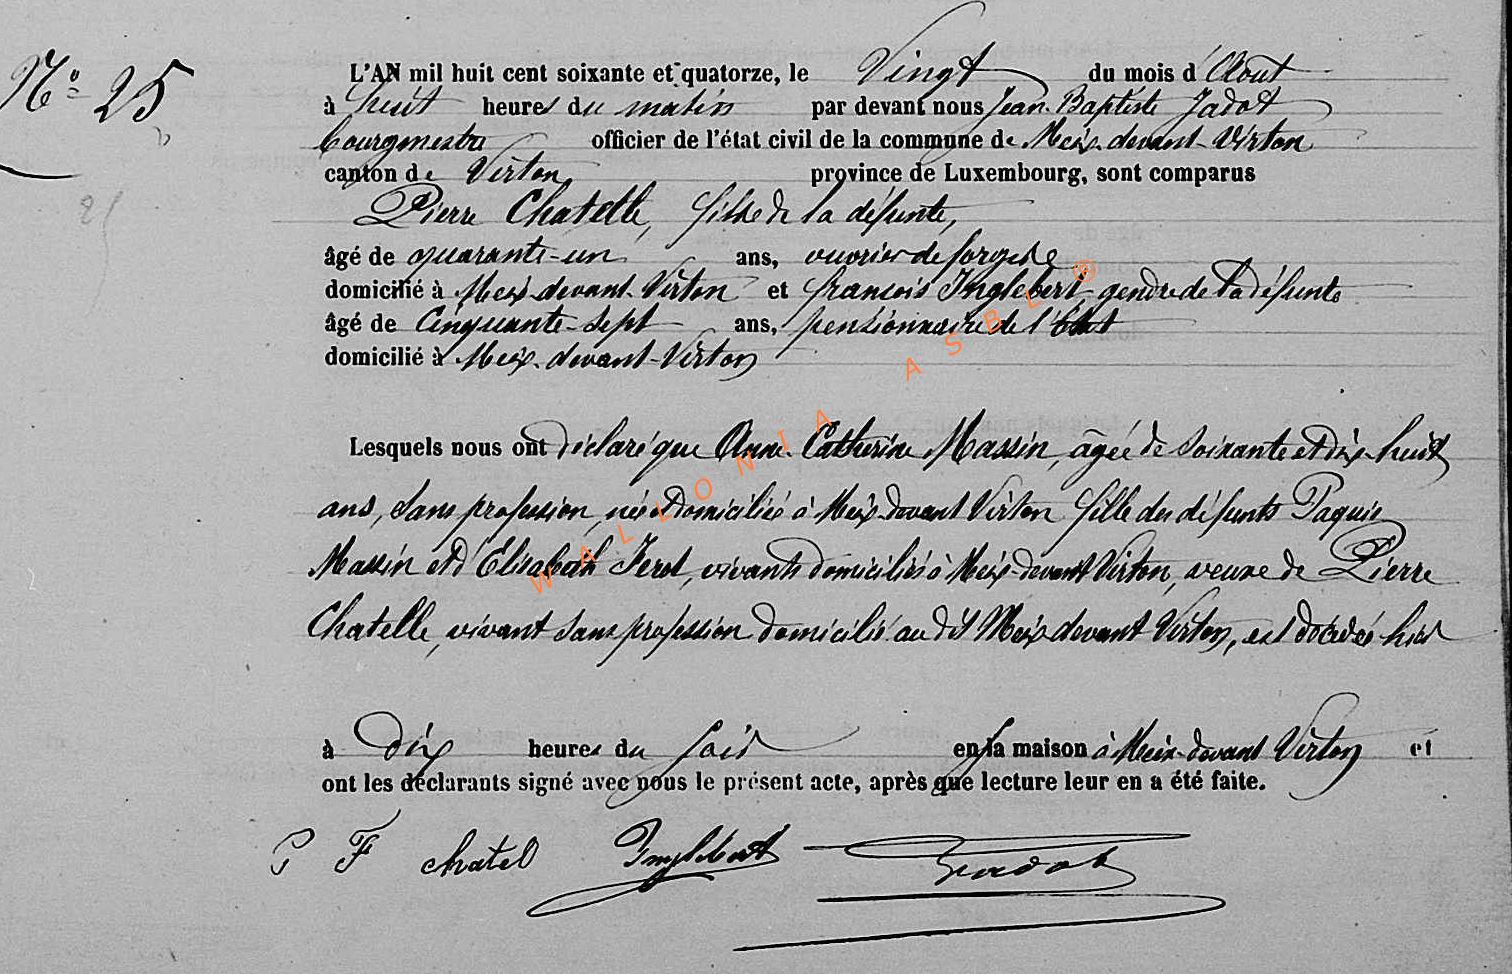 N° 25
L'AN mil huit cent soixante et quatorze, le Vingt du mois d'Août
à huit heures du matin par devant nous Jean-Baptiste Jadot
bourgmestre officier de l'état civil de la commune de Meix-devant-Virton
canton de Virton province de Luxembourg, sont comparus
Pierre Chatelle, fils de la défunte,
âgé de quarante-un ans, ouvrier de forges
domicilié à Meix-devant-Virton et françois Inglebert, gendre de la défunte
âgé de Cinquante-sept ans, pensionnaire de l'Etat
domicilié à Meix-devant-Virton
Lesquels nous ont déclaré que Anne-Catherine Massin, âgée de soixante et dix-huit
ans, sans profession, née et domiciliée à Meix-devant Virton fille des défunts Paquis
Massin et d'Elisabeth Feret, vivants domiciliés à Meix-devant Virton, veuve de Pierre
Chatelle, vivant sans profession domicilié au dit Meix devant Virton, est décédée hier
à dix heures du soir en sa maison à Meix-devant Virton et
ont les déclarants signé avec nous le présent acte, après que lecture leur en a été faite.
P F chatel Inglebert Jadot
WALLONIA ASBL ®